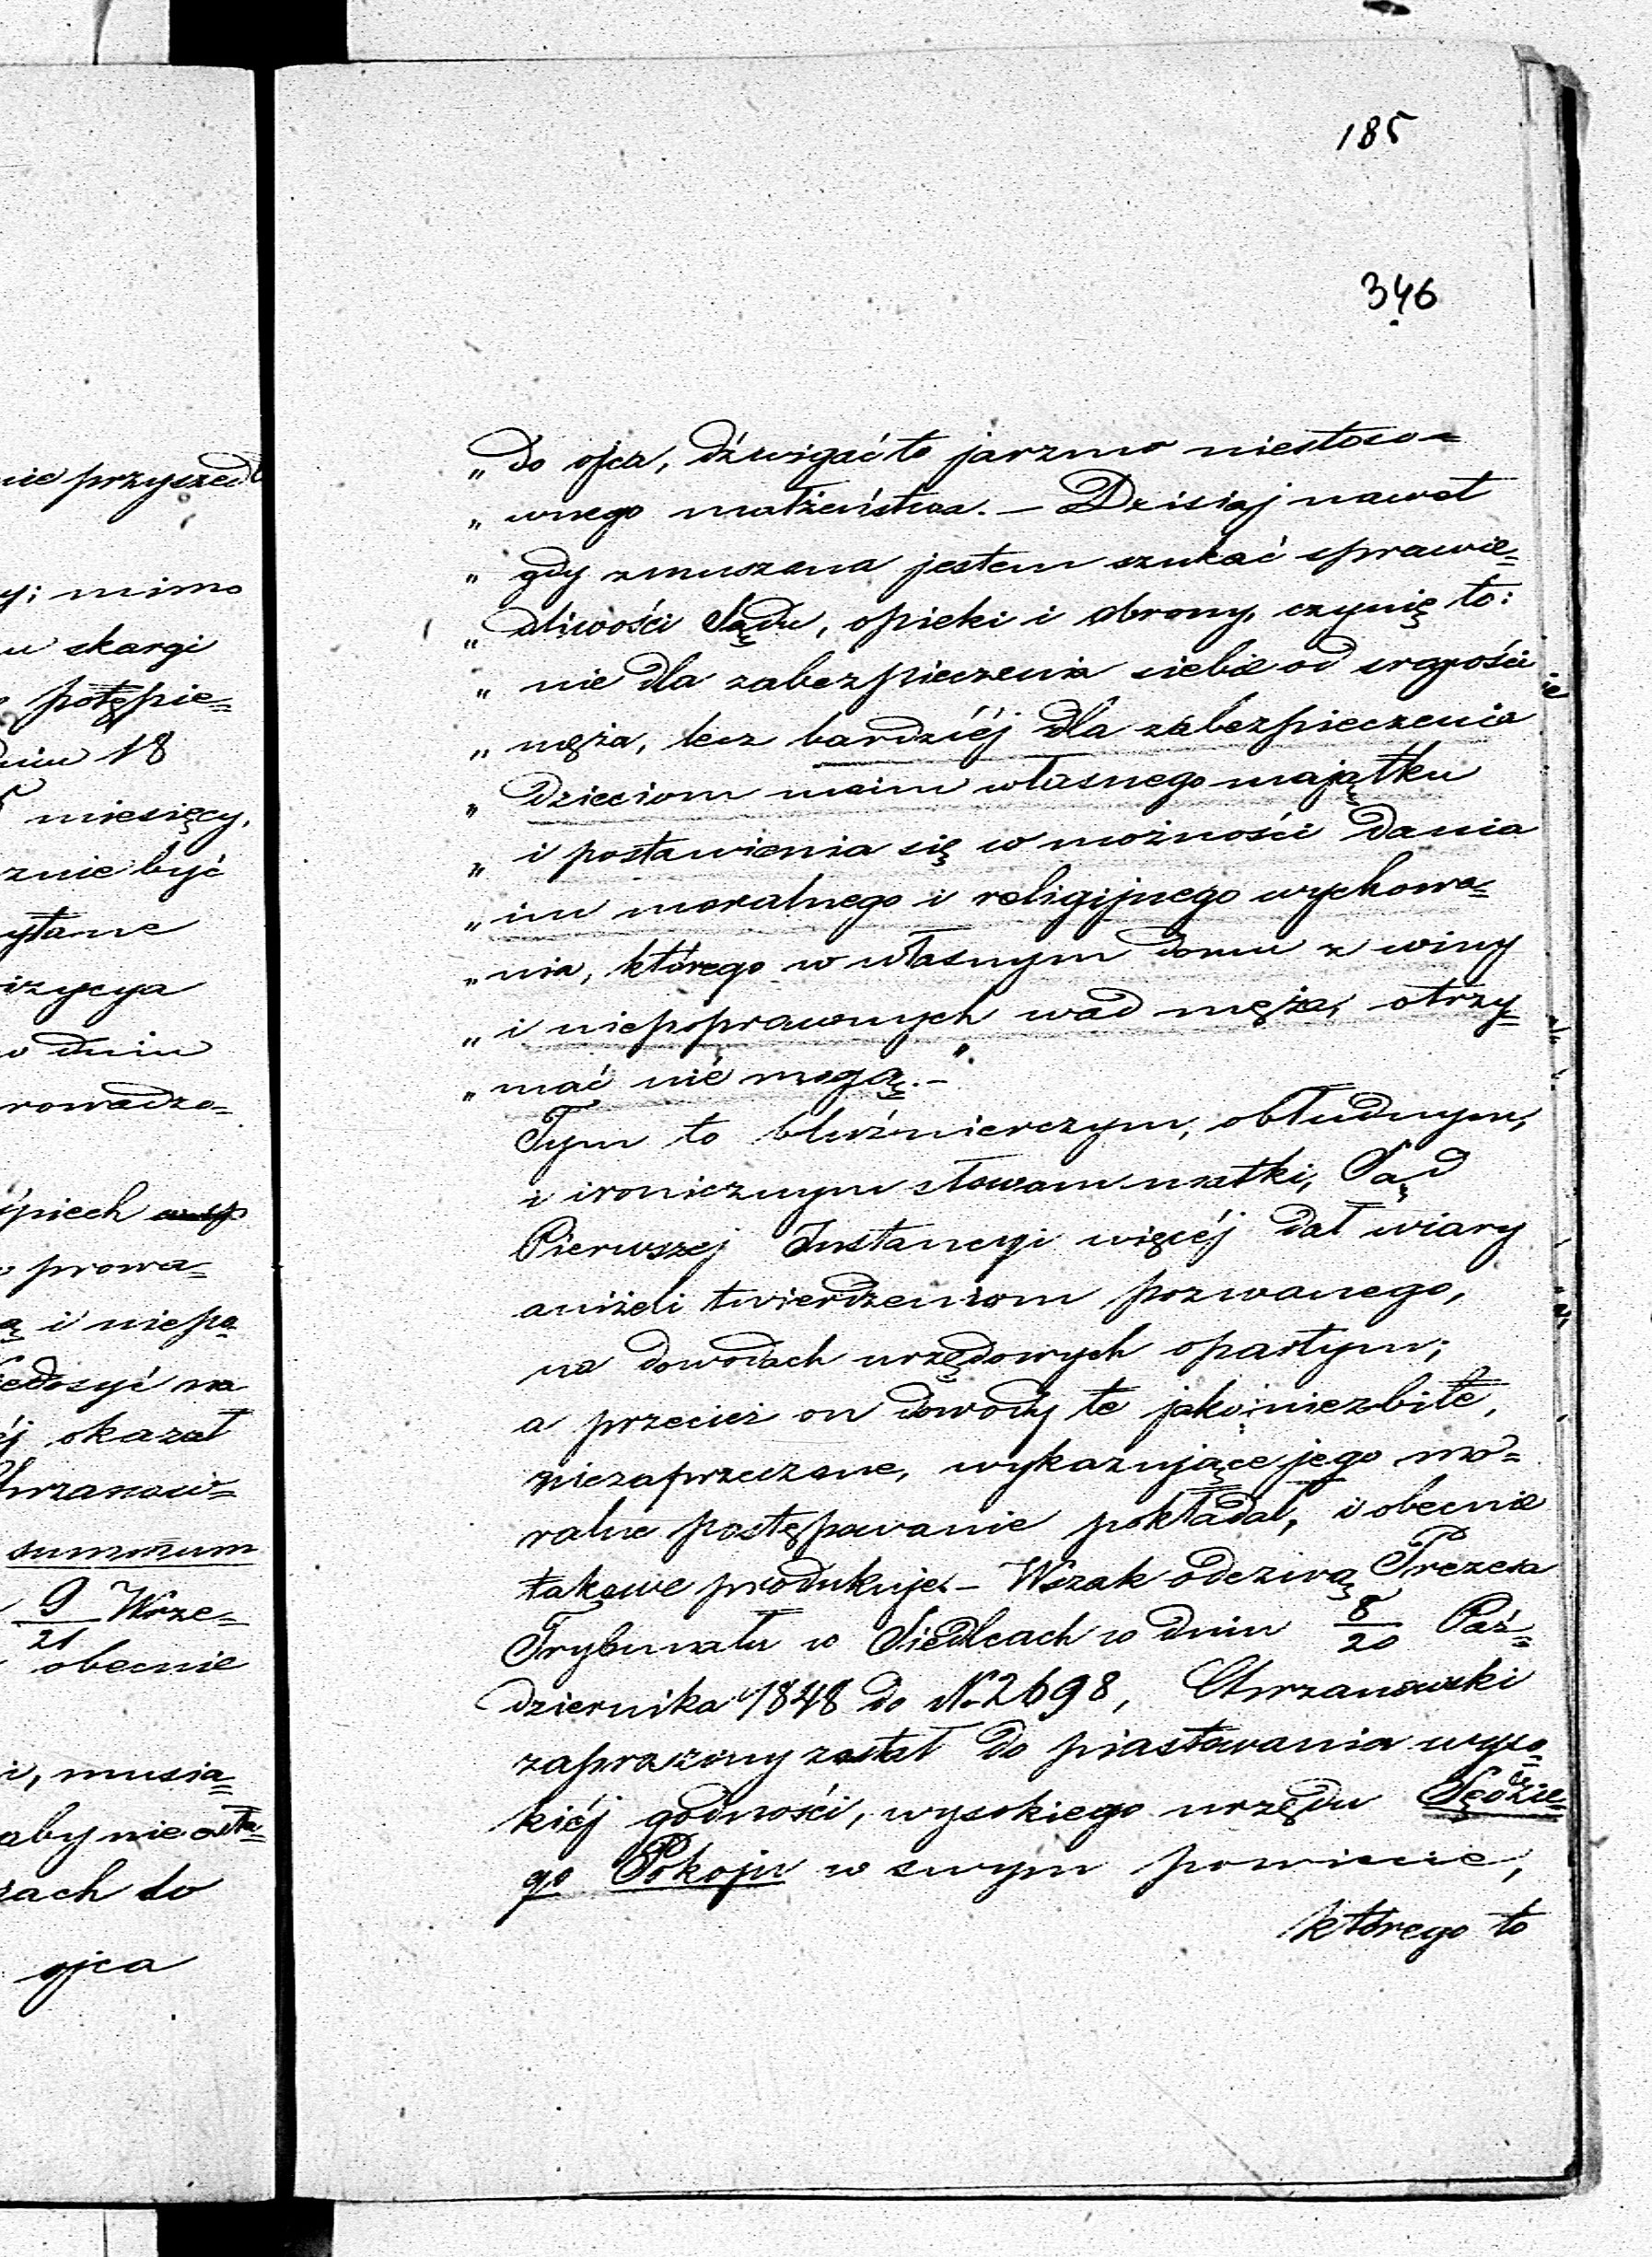 185
346
nie przyszedł
mimo
skargi
potępie=
18
miesięcy,
być
dniu
rowadzo=
prowa=
i niepo
okazał
summum
9/21 Wrze=
obecnie
musia=
aby nie
do
ojca
„do ojca, dźwigać to jarzmo niestoso=
„wnego małżeństwa. – Dzisiaj nawet
„gdy zmuszona jestem szukać sprawie=
„dliwości Sądu, opieki i obrony, czynię to:
„nie dla zabezpieczenia siebie od srogości
„męża, lecz bardziéj dla zabezpieczenia
„dzieciom moim własnego majątku
„i postawienia się w możności dania
„im moralnego i religijnego wychowa=
„nia, którego w własnym domu z winy
„i niepoprawnych wad męża, otrzy=
„mać nie mogą. –"
Tym to bluźnierczym, obłudnym,
i ironicznym słowom matki, Sąd
Pierwszej Instancyi więcéj dał wiary
aniżeli twierdzeniom pozwanego,
na dowodach urzędowych opartym;
a przecież on dowody te jako niezbite,
niezaprzeczone, wykazujące jego mo=
ralne postępowanie pokładał, i obecnie
takowe produkuje. – Wszak odezwą Prezesa
Trybunału w Siedlcach w dniu 8/20 Paź=
dziernika 1848 do No 2698, Chrzanowski
zaproszony został do piastowania wyso=
kiéj godności, wysokiego urzędu Sędzie=
go Pokoju w swym powiecie,
którego to